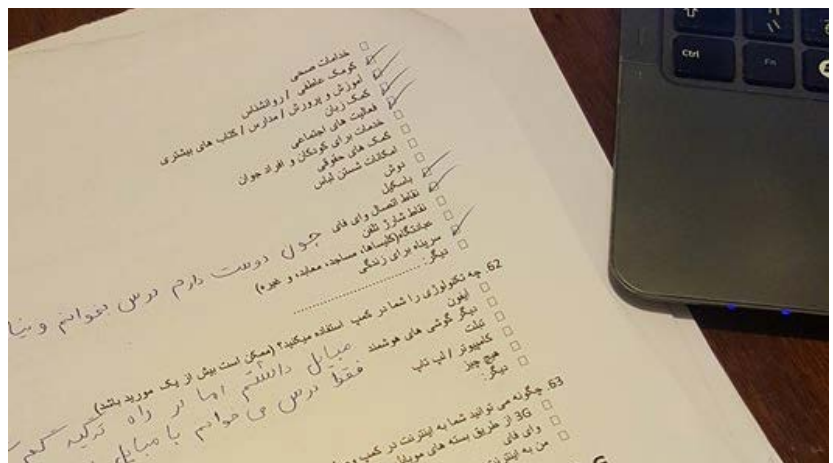 خدامات صحی
کومک عاطفی / روانشناس
آموزش و پرورش / مدارس / کتاب های بیشتری
کمک زبان
فعالیت های اجتماعی
خدمات برای کودکان و افراد جوان
کمک های حقوقی
امکانات شستن لباس
دوش
باسکیل
نقاط اتصال وای فای
نقاط شارژ تلفن
عبادتگاه(کلیساها، مساجد، معابده و غیره)
سرپناه برای زندگی
دیگر:
چون دوست دارم درس بخوانم و
62. چه تکنولوژی را شما در کمپ استفاده میکنید؟ (ممکن است بیش از یک مورید باشد)
آیفون
دیگر گوشی های هوشمند
تبلت
کامپیوتر / لپ تاپ
هیچ چیز
دیگر:
مبایل داشتم اما در راه ترکیه
فقط درس می خوانم با مبایل
63. چگونه می توانید شما به اینترنت در کمپ
3G از طریق بسته های
وای فای
من به اینترنت
Ctrl
Fn